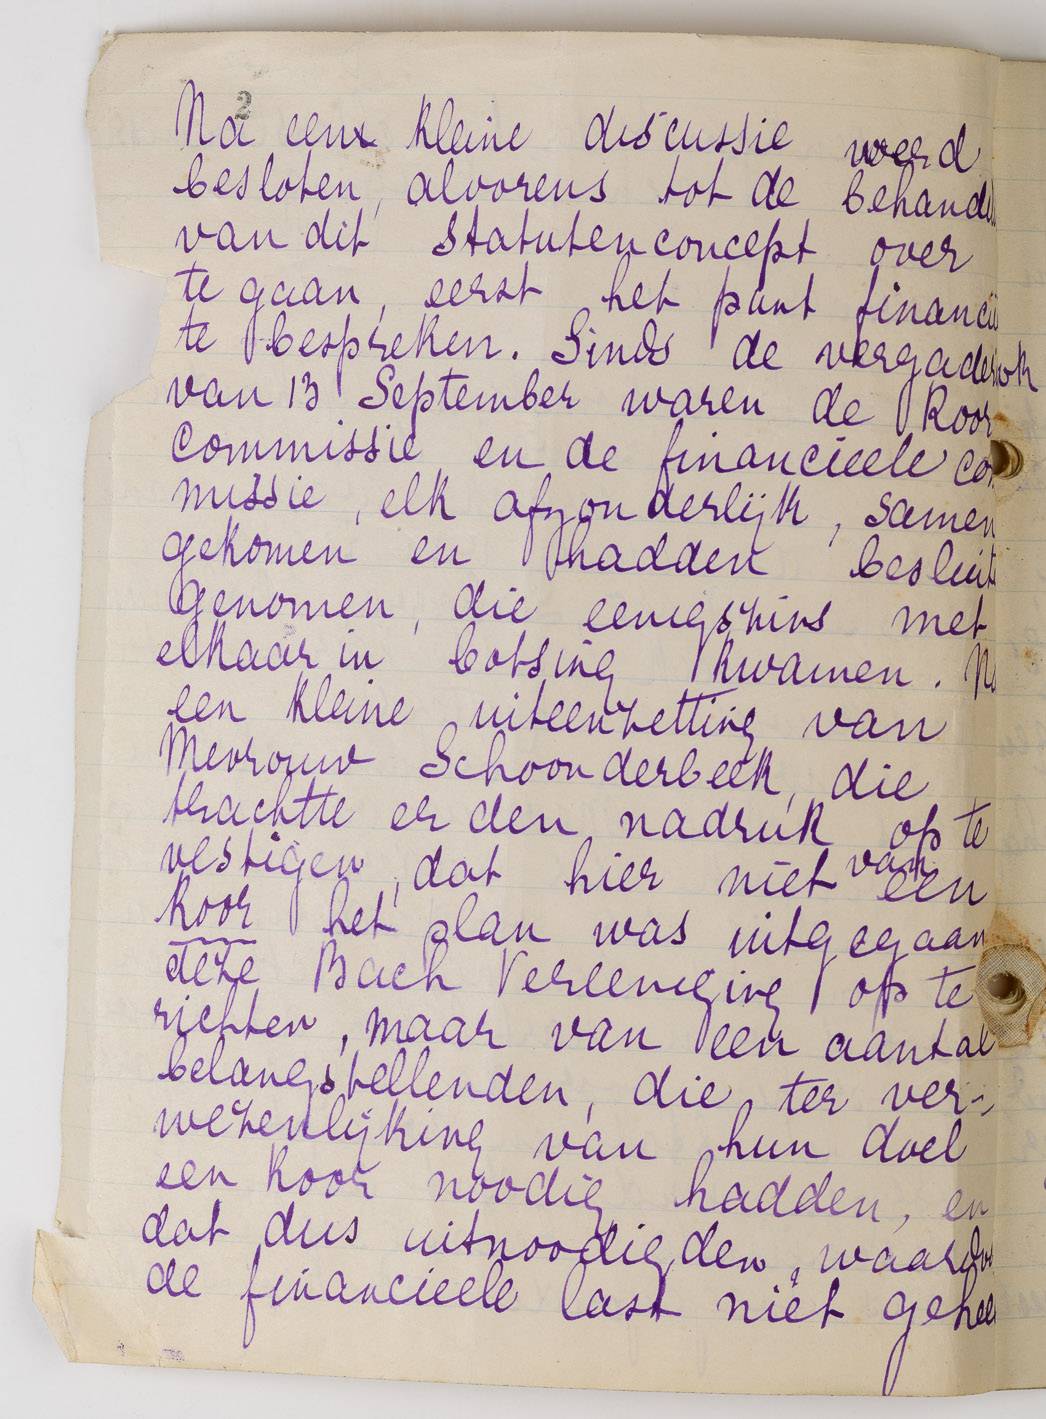 2
Na een kleine discussie werd
besloten, alvorens tot de behandel
van dit statutenconcept over
te gaan, eerst het punt financië
te bespreken. Sinds de vergader
van 13 September waren de koor
commissie en de financieele com
missie, elk afzonderlijk, samen
gekomen en hadden besluit
genomen, die eenigszins met
elkaar in botsing kwamen. Na
een kleine uiteenzetting van
Mevrouw Schoonderbeek, die
trachtte er den nadruk op te
vestigen, dat hier niet van een
koor het plan was uitgegaan
deze Bach Vereeniging op te
richten, maar van een aantal
belangstellenden, die ter ver-
wezenlijking van hun doel
een koor noodig hadden, en
dat dus uitnoodigden, waardoor
de financieele last niet geheel